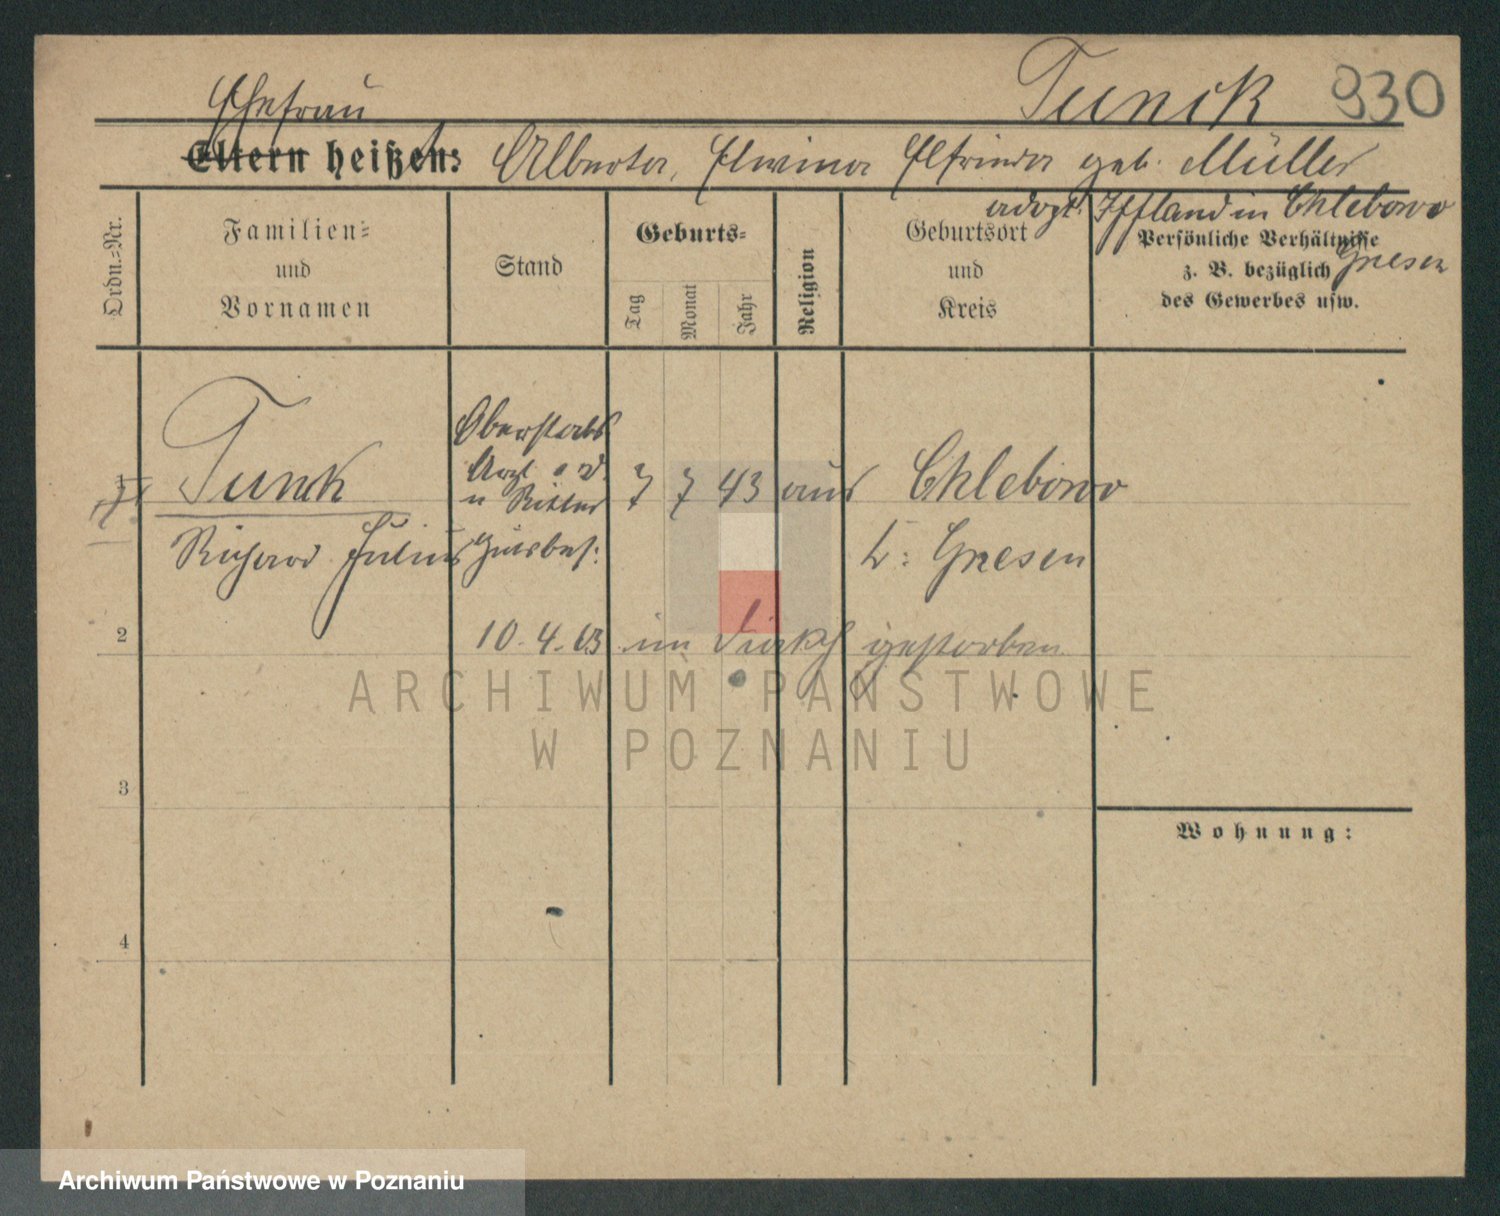 Tunck 930
Ehefrau
Eltern heißen: Alberta, Elwina Elfrieda geb. Müller
adopt. Iffland in Chlebowo
Gnesen
Ordn.-Nr.
Familien-
und
Vornamen
Stand
Geburts-
Tag
Monat
Jahr
Religion
Geburtsort
und
Kreis
Persönliche Verhältnisse
z. B. bezüglich
des Gewerbes usw.
Oberstabs
Arzt a. D.
u Ritter
gutsbes:
1 Tunck 7 7 43 aus Chlebowo
Richard Julius K: Gnesen
2 10. 4. 03 im gestorben
3
Wohnung:
4
ARCHIWUM PAŃSTWOWE
W POZNANIU
Archiwum Państwowe w Poznaniu